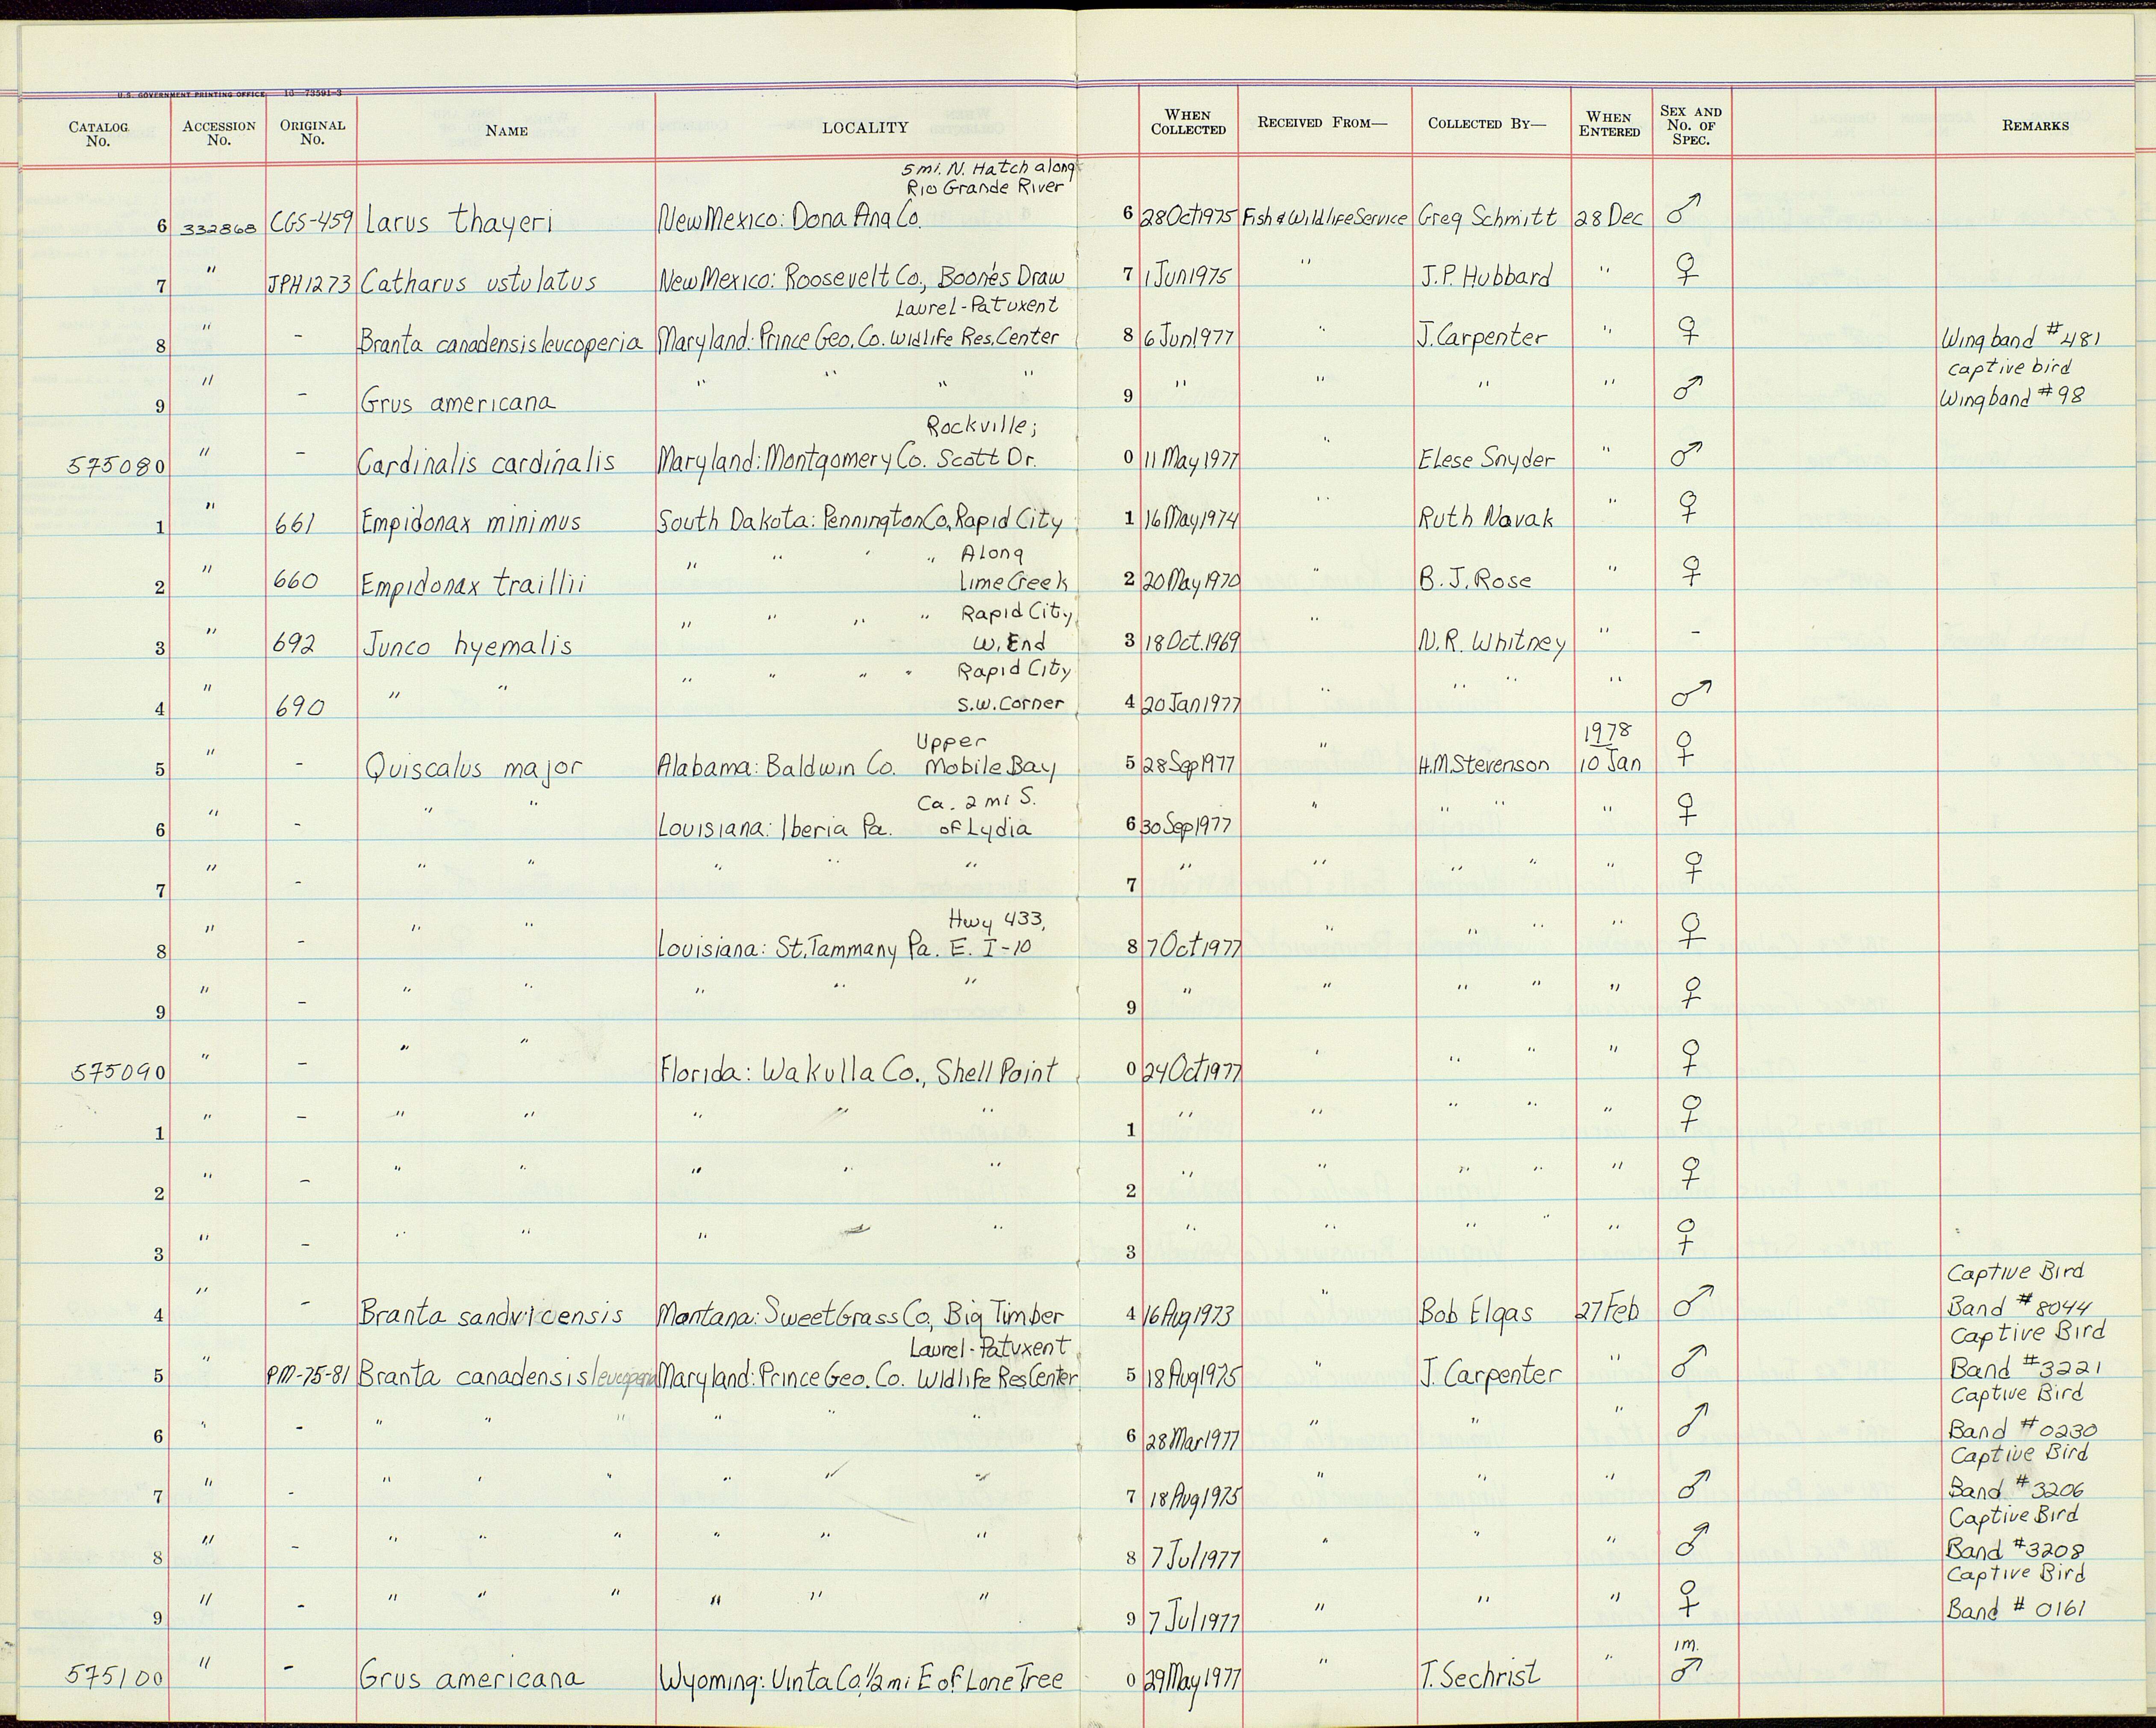 U.S. GOVERNMENT PRINTING OFFICE 16—73591-3
CATALOG No. ACCESSION No. ORIGINAL No. NAME LOCALITY WHEN COLLECTED RECEIVED FROM— COLLECTED BY— WHEN ENTERED SEX AND No. OF SPEC. REMARKS
5 mi. N. Hatch along
Rio Grande River
6 332868 CGS-459 Larus thayeri New Mexico: Dona Ana Co. 6 28 Oct 1975 Fish & Wildlife Service Greg Schmitt 28 Dec ♂
7 " JPH1273 Catharus ustulatus New Mexico: Roosevelt Co., Boones Draw 7 1 Jun 1975 " J.P. Hubbard " ♀
Laurel-Patuxent
8 " - Branta canadensis leucoperia Maryland: Prince Geo. Co. Wldlife Res. Center 8 6 Jun 1977 " J. Carpenter " ♀ Wing band #481
captive bird
9 " - Grus americana " " " " 9 " " " " ♂ Wing band #98
Rockville;
575080 " - Cardinalis cardinalis Maryland: Montgomery Co. Scott Dr. 0 11 May 1977 " Elese Snyder " ♂
1 " 661 Empidonax minimus South Dakota: Pennington Co, Rapid City 1 16 May 1974 " Ruth Navak " ♀
" " " " Along
2 " 660 Empidonax traillii Lime Creek 2 20 May 1970 " B. J. Rose " ♀
" " " " Rapid City
3 " 692 Junco hyemalis W. End 3 18 Oct. 1969 " N.R. Whitney " -
" " " " Rapid City
4 " 690 " " S.W. Corner 4 20 Jan 1977 " " " " ♂
Upper 1978
5 " - Quiscalus major Alabama: Baldwin Co. Mobile Bay 5 28 Sep 1977 " H.M. Stevenson 10 Jan ♀
Ca. 2 mi S.
6 " - " " Louisiana: Iberia Pa. of Lydia 6 30 Sep 1977 " " " " ♀
7 " - " " " " " 7 " " " " " ♀
Hwy 433,
8 " - " " Louisiana: St. Tammany Pa. E. I-10 8 7 Oct 1977 " " " " ♀
9 " - " " " " " 9 " " " " " ♀
575090 " - " " Florida: Wakulla Co., Shell Point 0 24 Oct 1977 " " " " ♀
1 " - " " " " " 1 " " " " " ♀
2 " - " " " " " 2 " " " " " ♀
3 " - " " " " " 3 " " " " " ♀
Captive Bird
4 " - Branta sandvicensis Montana: Sweet Grass Co, Big Timber 4 16 Aug 1973 " Bob Elgas 27 Feb ♂ Band #8044
Laurel-Patuxent Captive Bird
5 " PM-75-81 Branta canadensis leucoperia Maryland: Prince Geo. Co. Wldlife Res Center 5 18 Aug 1975 " J. Carpenter " ♂ Band #3221
Captive Bird
6 " - " " " " " " 6 28 Mar 1977 " " " ♂ Band #0230
Captive Bird
7 " - " " " " " " 7 18 Aug 1975 " " " ♂ Band #3206
Captive Bird
8 " - " " " " " " 8 7 Jul 1977 " " " ♂ Band #3208
Captive Bird
9 " - " " " " " " 9 7 Jul 1977 " " " ♀ Band # 0161
im.
575100 " - Grus americana Wyoming: Uinta Co, 1/2 mi E of Lone Tree 0 29 May 1977 " T. Sechrist " ♂